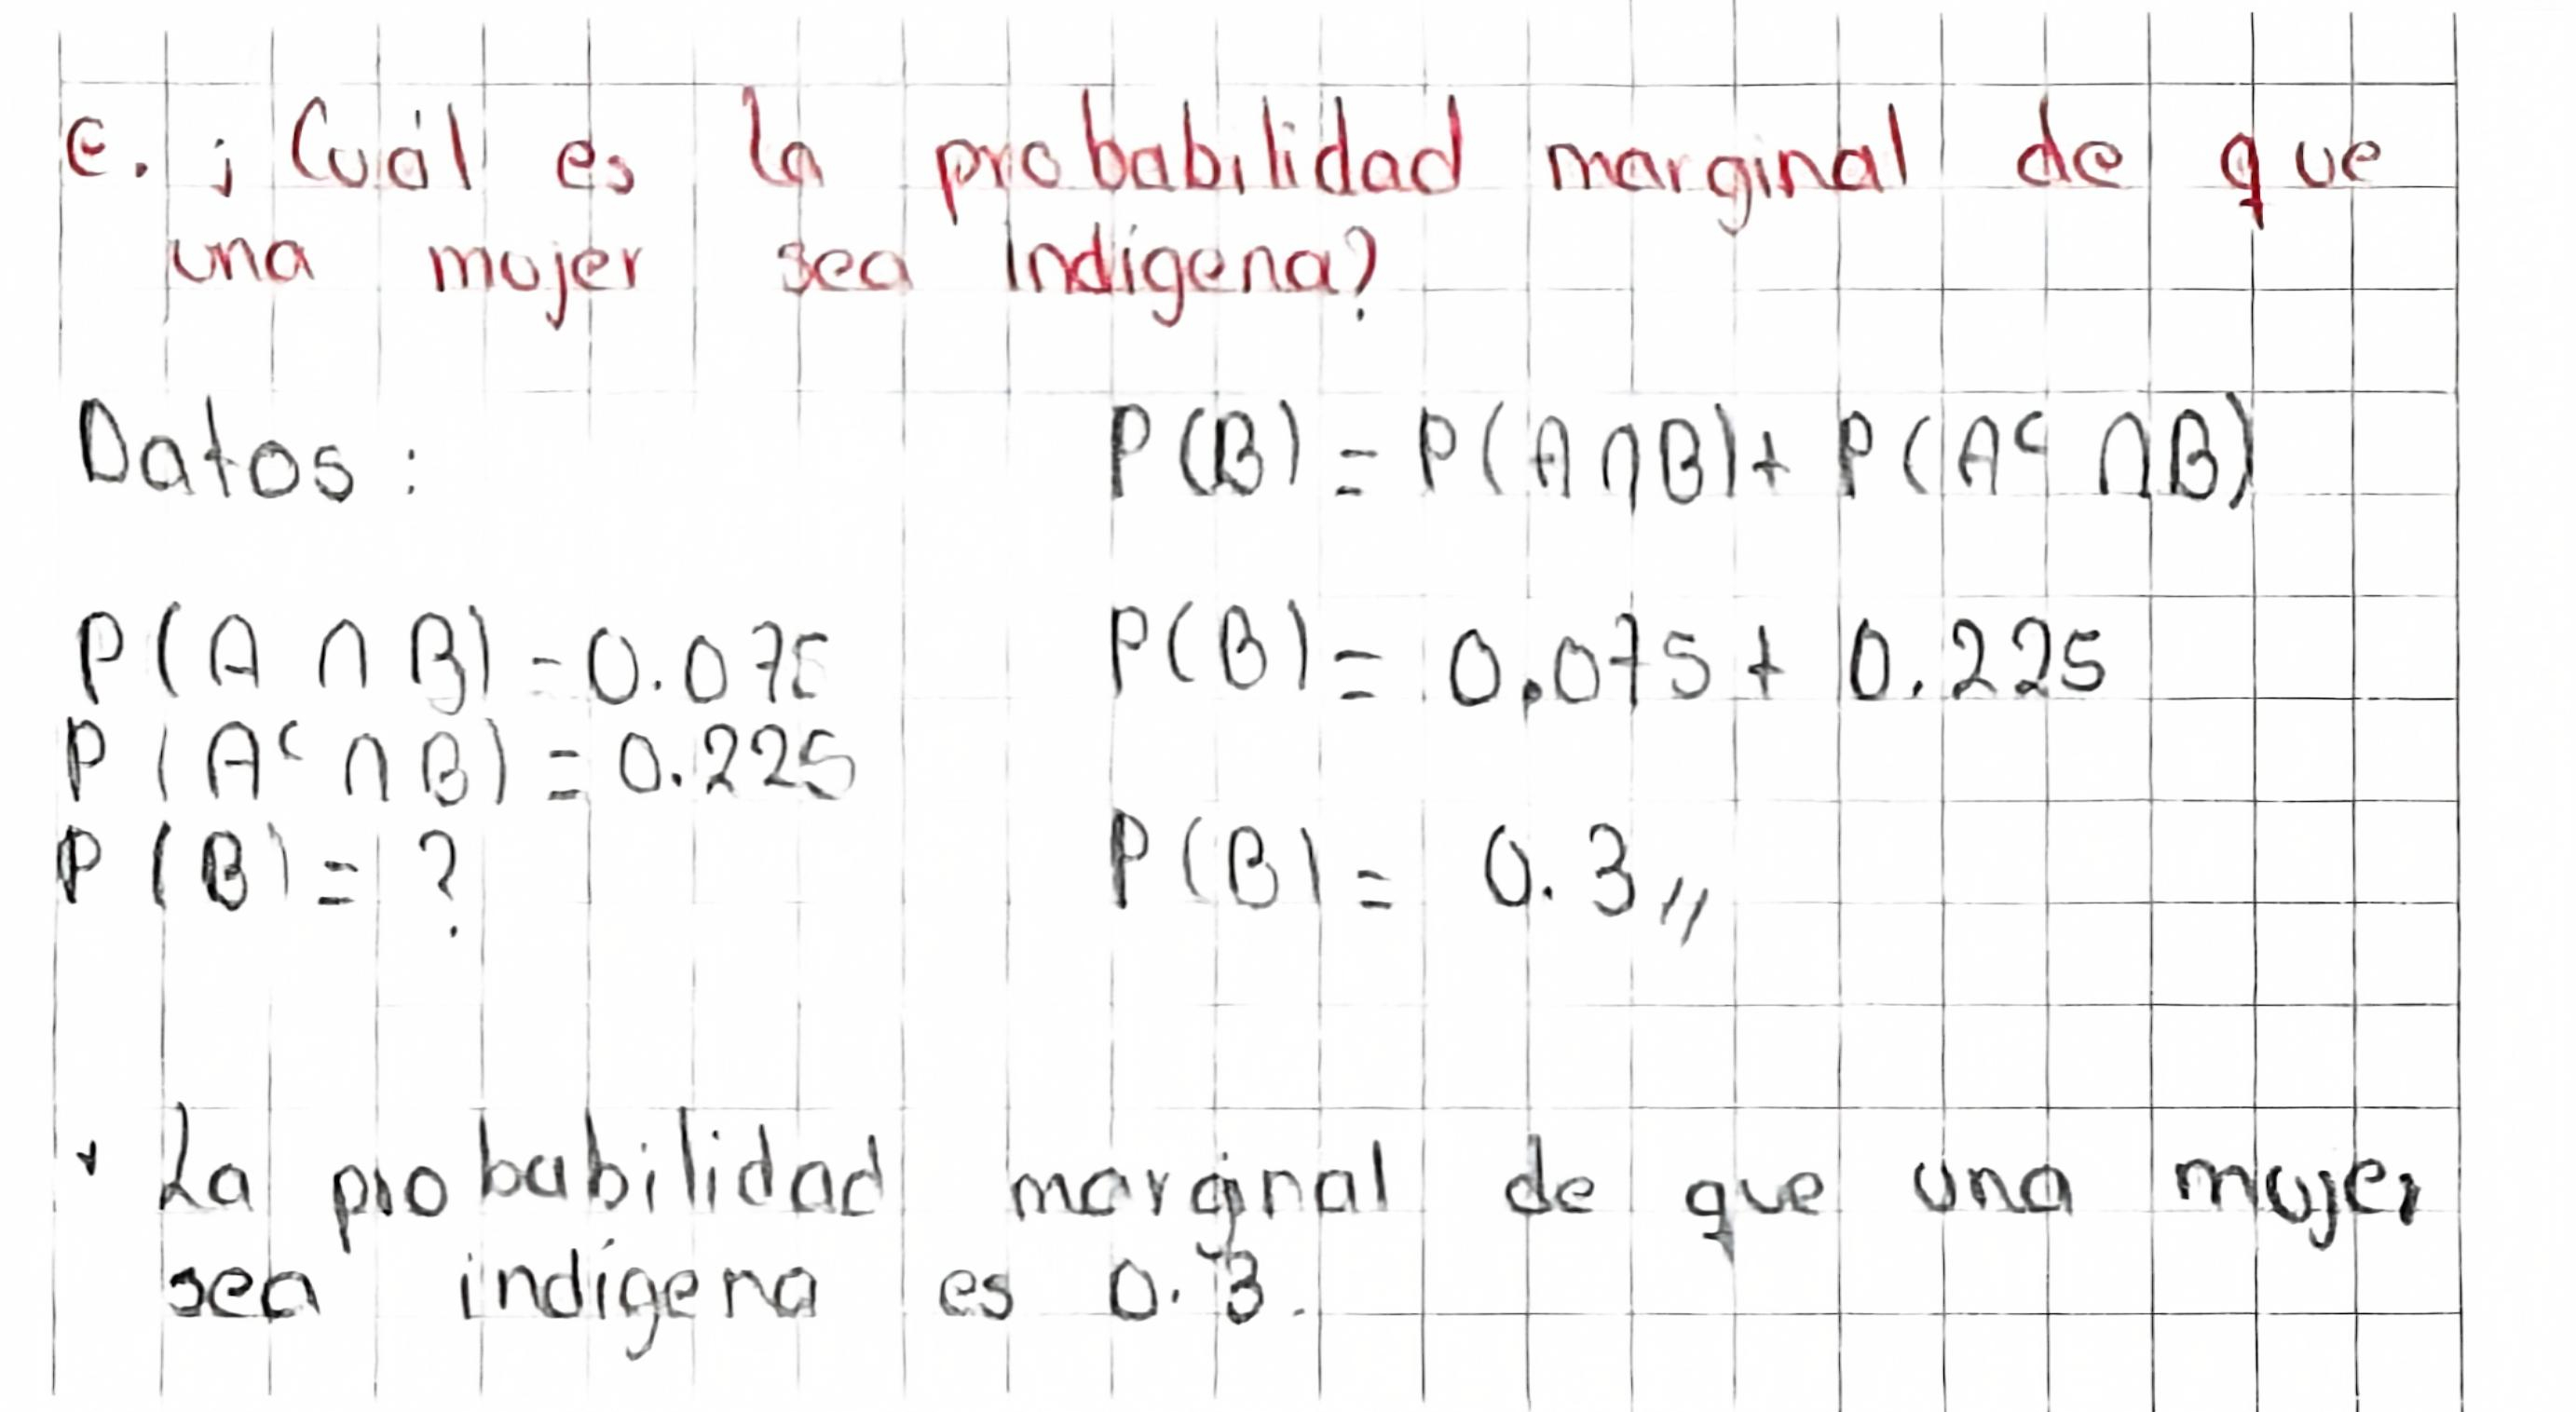 e. ¿Cuál es la probabilidad marginal de que
una mujer sea indígena?
Datos:
P(B) = P(A∩B) + P(Aᶜ ∩B)
P(A ∩ B) = 0.075
P(B) = 0.075 + 0.225
P(Aᶜ ∩ B) = 0.225
P(B) = ?
P(B) = 0.3 //
La probabilidad marginal de que una mujer
sea indígena es 0.3.